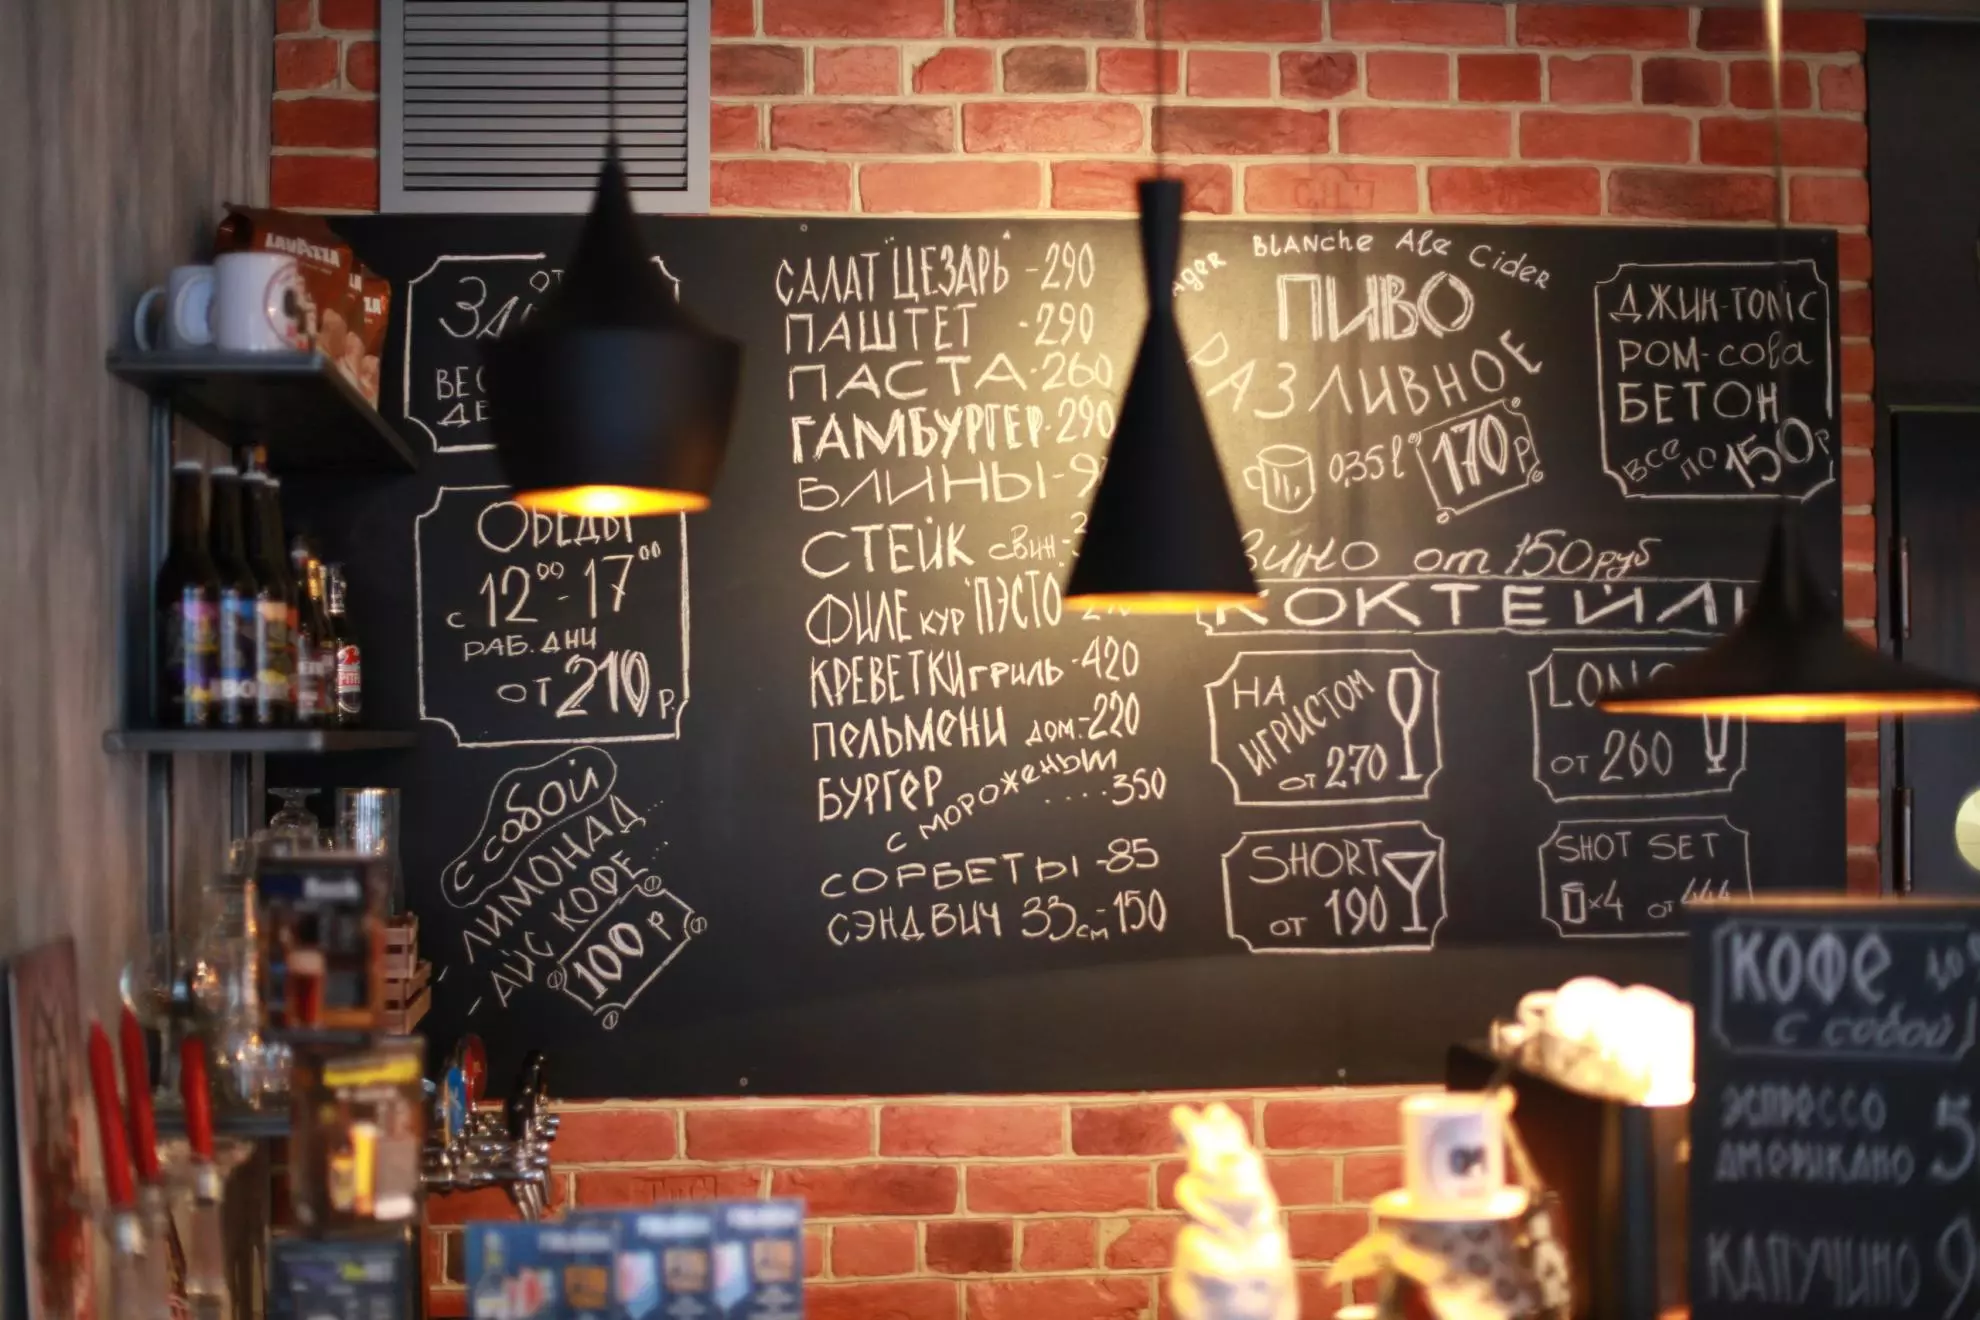 LAVAZZA
ОБЕДЫ
с 12⁰⁰-17⁰⁰
РАБ. ДНИ
ОТ 210 Р.
С СОБОЙ
- ЛИМОНАД...
- АЙС КОФЕ...
100 Р
САЛАТ "ЦЕЗАРЬ" - 290
ПАШТЕТ - 290
ПАСТА - 260
ГАМБУРГЕР - 290
БЛИНЫ -
СТЕЙК СВИН -
ФИЛЕ КУР "ПЭСТО"
КРЕВЕТКИ ГРИЛЬ - 420
ПЕЛЬМЕНИ ДОМ. - 220
БУРГЕР
С МОРОЖЕНЫМ
....350
СОРБЕТЫ - 85
СЭНДВИЧ 33 см - 150
Blanche Ale Cider
ПИВО
РАЗЛИВНОЕ
0,35 l 170 Р
ДЖИН-TONIC
РОМ-cola
БЕТОН
ВСЕ ПО 150 Р
ВИНО от 150 руб
КОКТЕЙЛ
НА
ИГРИСТОМ
ОТ 270
ОТ 260
SHORT
ОТ 190
SHOT SET
x4 ОТ 444
КОФЕ
с собой
ЭСПРЕССО
АМЕРИКАНО
КАПУЧИНО